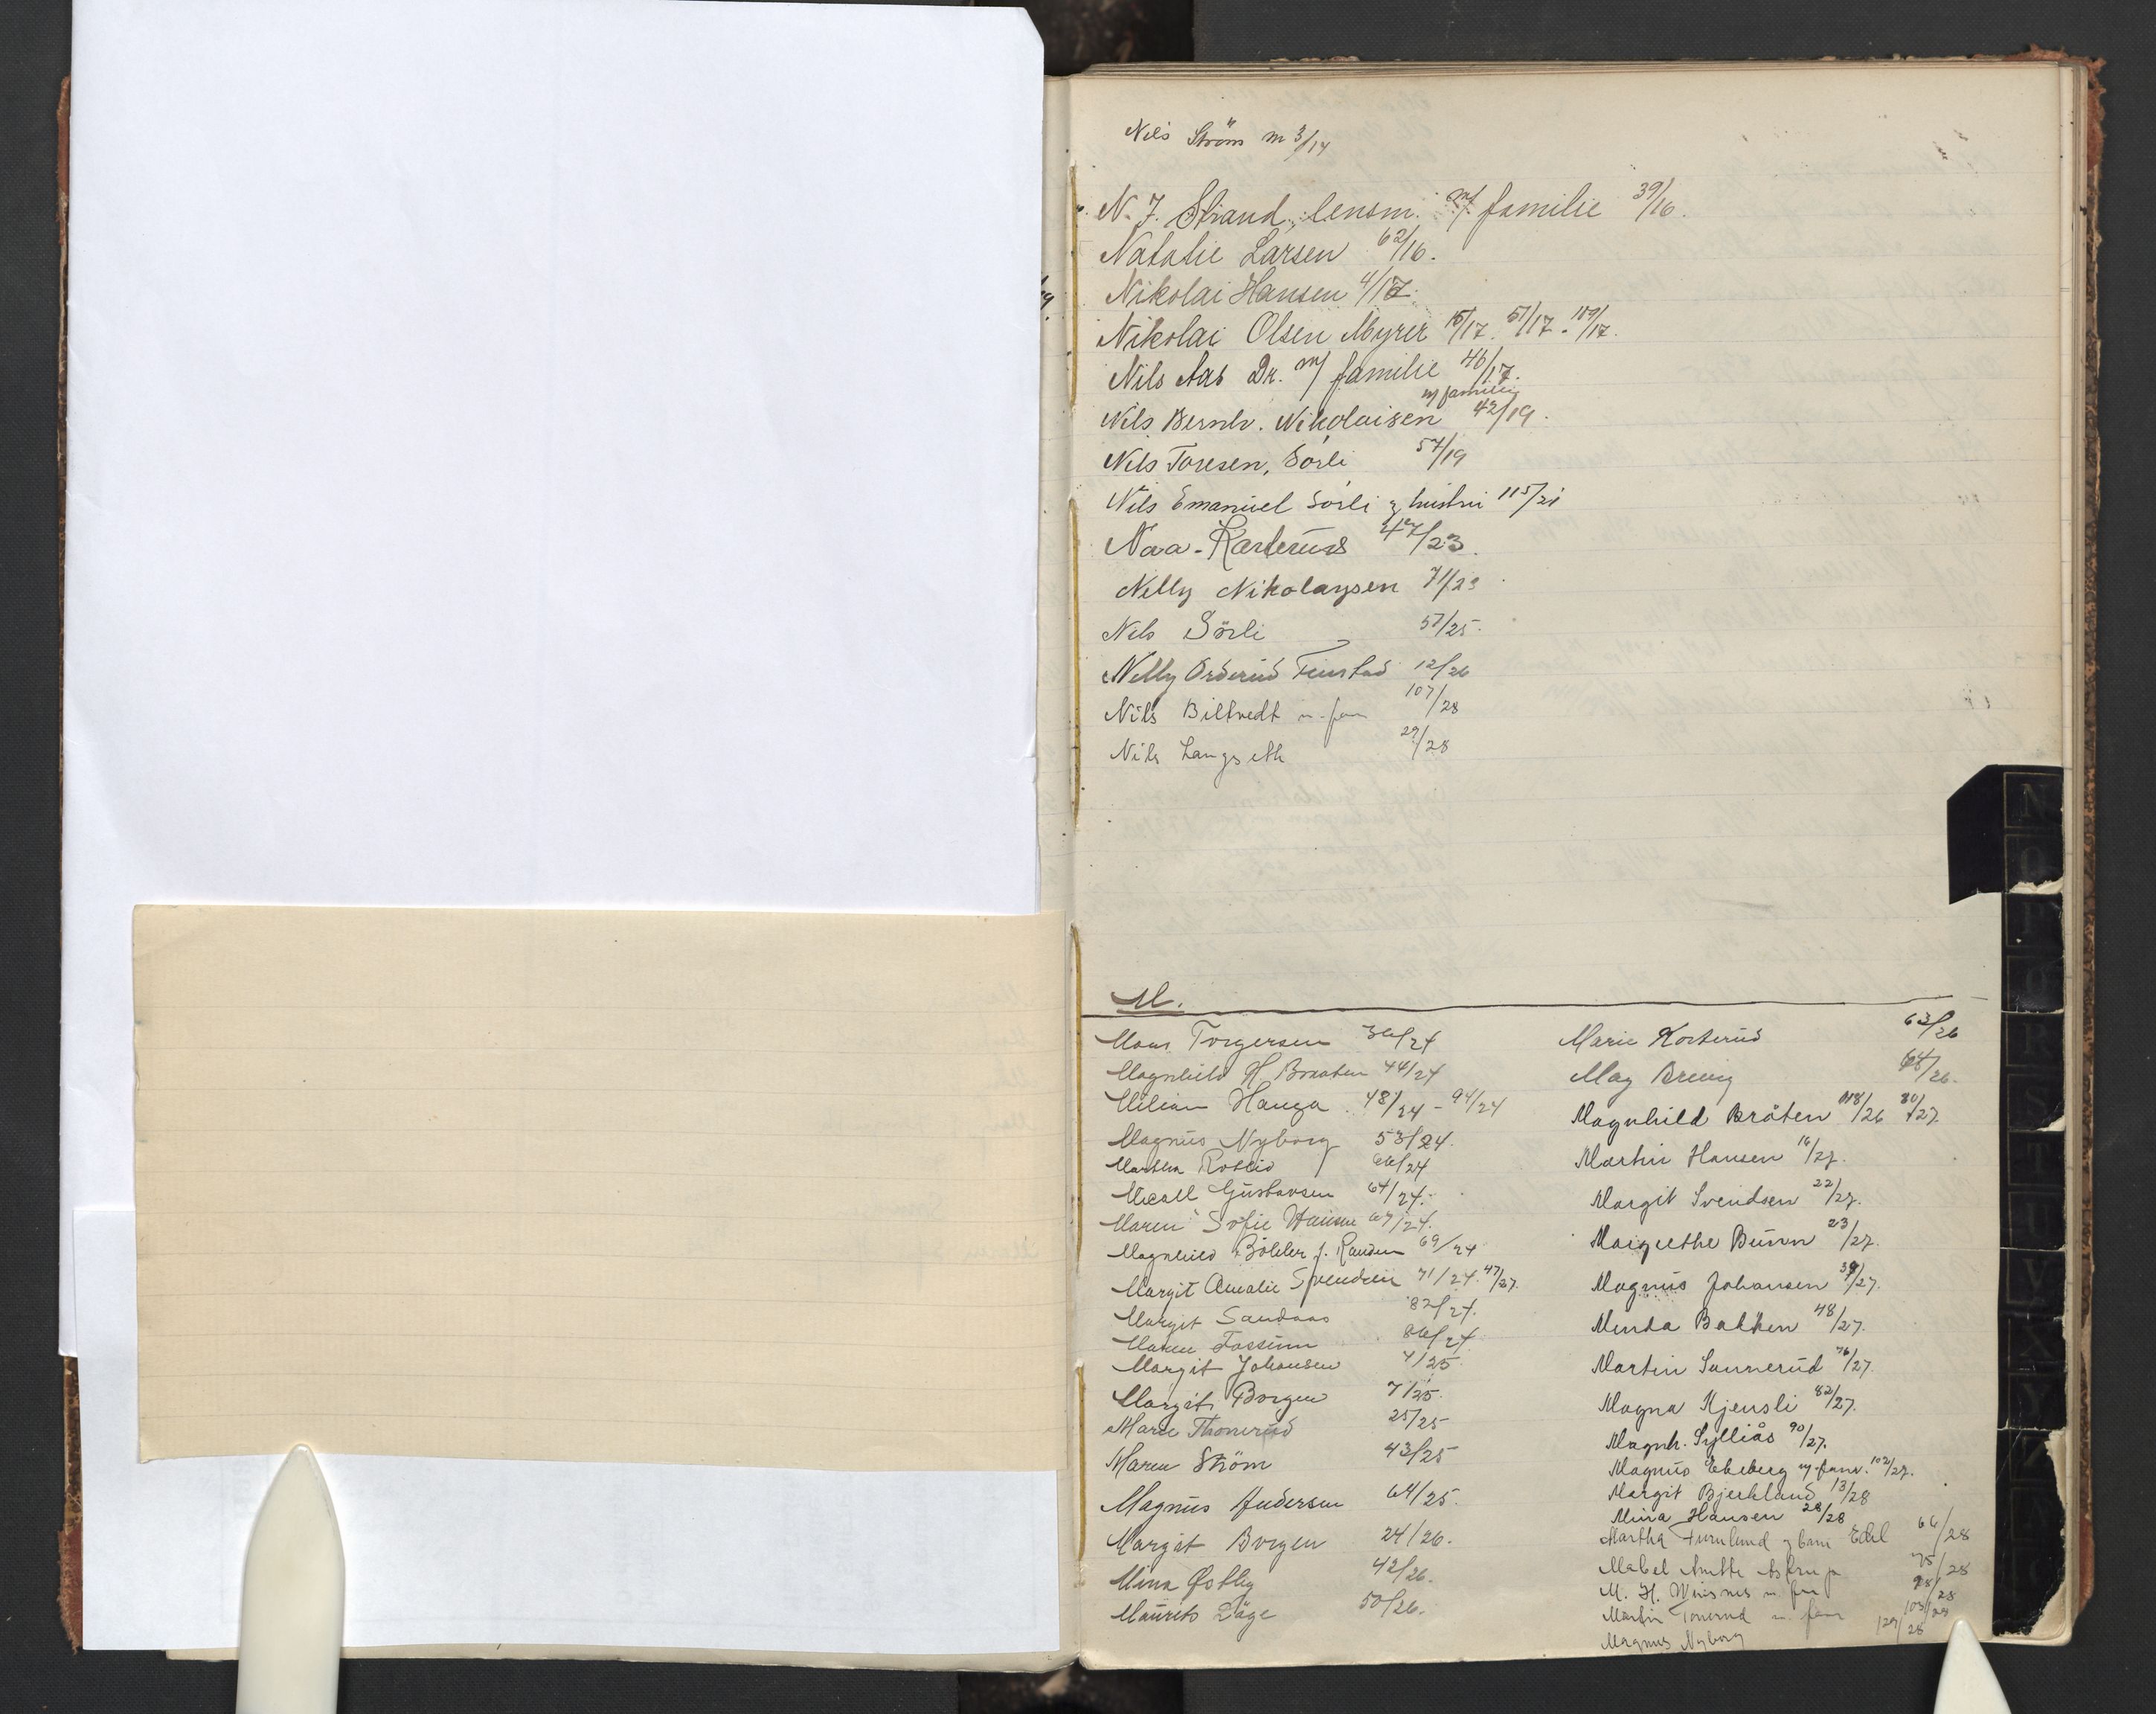 Nils Ström m 3/14
N. J. Strand, lensm. m/ familie 39/16.
Natalie Larsen 62/16.
Nikolai Hansen 4/17.
Nikolai Olsen Myrer 15/17. 51/17. 109/17.
Nils Aas Dr. m/ familie 46/17.
m/ familie
Nils Bernh. Nikolaisen 42/19.
Nils Toresen, Sörli 54/19
Nils Emanuel Sörli & hustru 115/21
Naa-Karterud 47/23.
Nelly Nikolaysen 71/23
Nils Sörli 57/25.
Nelly Orderud Finstad 12/26
Nils Biltvedt m. fam 107/28
Nils Langseth 29/28
M.
Torgersen 36/24
Magnhild H. Braaten 44/24
Milian Hauga 48/24 - 94/24
Magnus Nyborg 53/24.
Martha 66/24
Gustavsen 64/24.
Maren Sofie Hansen 67/24.
Magnhild Böhler f. Randem 69/24
Margit Amalie Svendsen 71/24. 47/27.
Margit Sandaas 82/24.
Maren Fossum 86/24
Margit Johansen 4/25.
Margit Borgen 7/25.
Marie Thonerud 25/25
Maren Ström 43/25
Magnus Andersen 64/25.
Margit Borgen 24/26.
Mina Østby 42/26.
Maurits Dåge 50/26.
Marie Korterud 63/26
May Breivig 64/26.
Magnhild Bråten 118/26 80/27.
Martin Hansen 16/27.
Margit Svendsen 22/27.
Margrethe Bunn 23/27.
Magnus Johansen 39/27.
Menda Bakken 48/27.
Martin Sannerud 76/27.
Magna Kjensli 82/27.
Magnh. Sylliås 90/27.
Magnus Ekeberg m. fam. 102/27.
Margit Bjerkland 13/28
Mina Hansen 28/28
Martha Furulund & barn Edel 66/28
Mabel Anette Astrup 75/28
M. H. Wiisnes m. fam 98/28
Martin Tonerud m. fam 103/28
Magnus Nyborg 129/28
N
O
P
Q
R
S
T
U
V
X
Y
Z